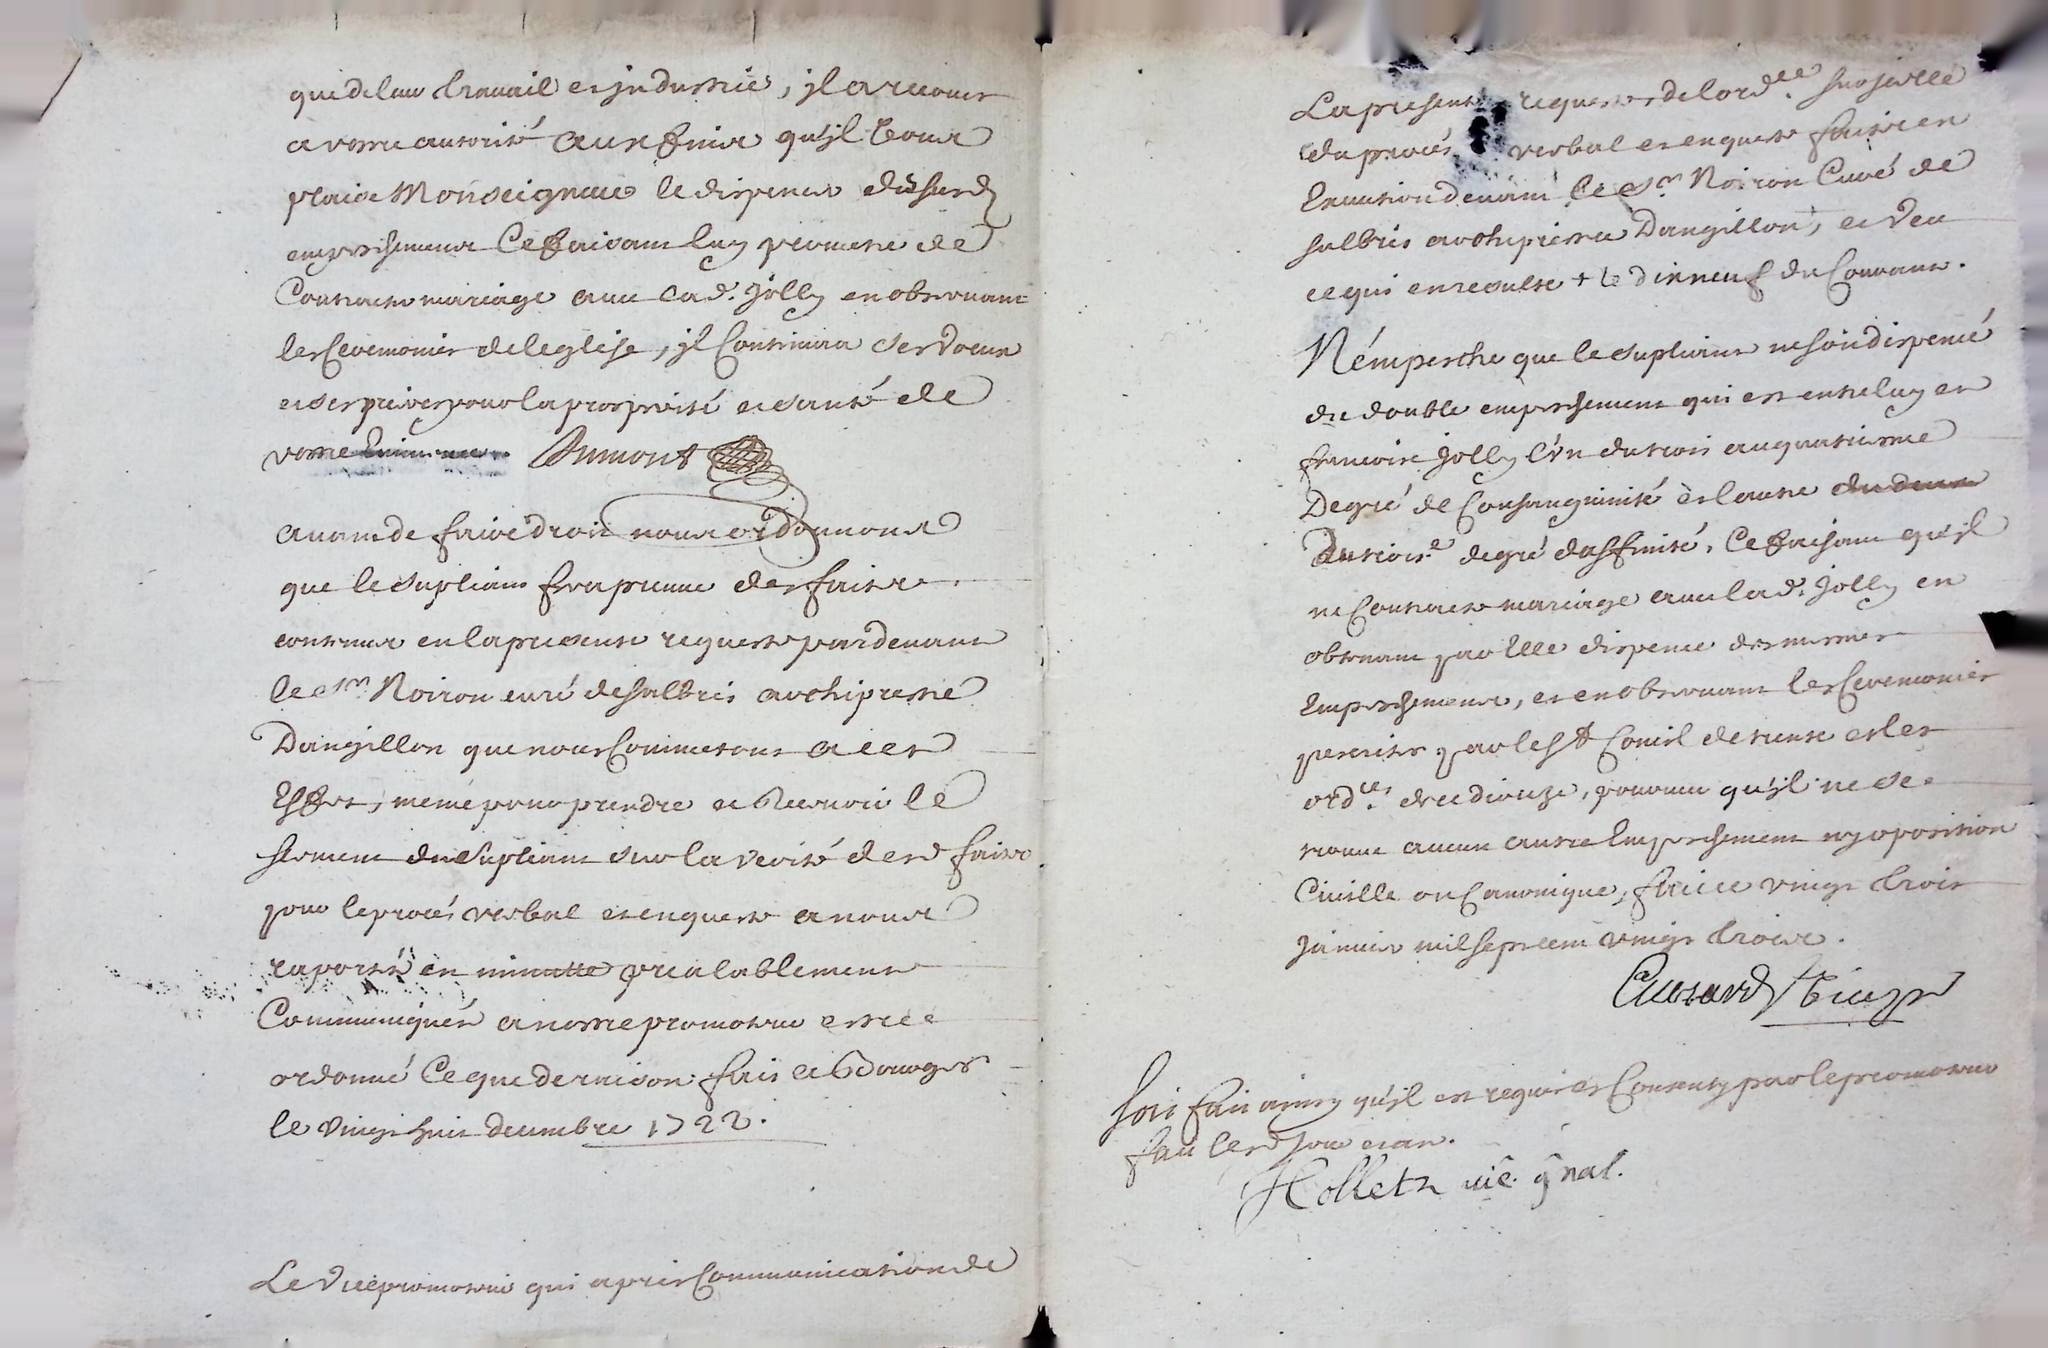 que de leur travail et jndustrie, jl a recours
a vostre autorité aux fins qu'jl vous
plaise Monseigneur le dispenser dususd
empeschement Ce faisant luy permetre de
Contracter mariage avec lad. Jolly en observant
les Ceremonies de leglise, jl Continuera ses voeux
et ses prieres pour la prosperité et santé de
vostre Eminence. Dumont
avant de faire droit nous ordonnons
que le supliant fera preuve des faits
contenus en la presente requeste pardevant
le sr Noiron curé de salbris archiprestre
Dangillon que nous Commetons a cet
Effet, mémé pour prendre et Recevoir le
serment du supliant sur la verité desd faits
pour le procés verbal et enqueste a nous
raportés en minutte prealablement
Communiqués a nostre promoteur estre
ordonné Ce que de raison fait a Bourges
le vingt huit decembre 1722.
Le vice promoteur qui apres Communication de
La presente requeste de lordce
du procés verbal et enqueste faite en
Execution devant le sr Noiron Curé de
salbris archiprestre Dangillon, et veu
ce qui en resulte + le dix neuf du Courant.
N'émpesche que le supliant ne soit dispensé
du double empeschement qui est entre luy et
francoise Jolly l'un du trois au quatrieme
Degré de Consanguinité et lautre du deux
Du troise degré dafinité, Ce faisant qu'jl
ne Contracte mariage avec lad. Jolly en
obtenant par Elle dispense des mesmes
Empeschements, et en observant les Ceremonies
prescrites par le st Concil de trente et les
ordces de ce dioceze, pourveu qu'jl ne se
trouve aucun autre Empeschement ny oposition
Civille ou Canonique, fait ce vingt trois
janvier mil sept cent vingt trois.
soit fait ainsy qu'jl est requis et Consenty par le promoteur
fait lesd jour et an.
Hollets vic. gñal.